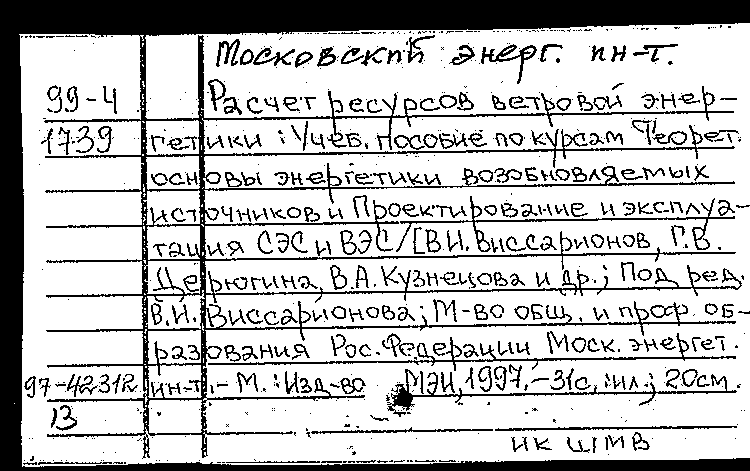 Московский энерг. ин-т.
99-4 Расчет ресурсов ветровой энер-
1739 гетики : Учеб. пособие по курсам Теорет.
основы энергетики возобновляемых
источников и Проектирование и эксплуа-
тация СЭС и ВЭС / [В.И. Виссарионов, Г.В.
Дерюгина, В.А. Кузнецова и др.; Под ред.
В.И. Виссарионова; М-во общ. и проф. об-
разования Рос. Федерации, Моск. энергет.
97-42312 ин-т. - М. : Изд-во МЭИ, 1997. - 31с. : ил.; 20см.
13
НК ЦМВ